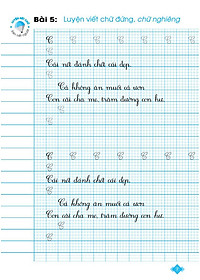 Bài 5: Luyện viết chữ đứng, chữ nghiêng
C C C C C C C
C
Cái nết đánh chết cái đẹp.
C
Cá không ăn muối cá ươn
Con cãi cha mẹ, trăm đường con hư.
C
C
C C C C C C C
C
Cái nết đánh chết cái đẹp.
C
Cá không ăn muối cá ươn
Con cãi cha mẹ, trăm đường con hư.
C
C